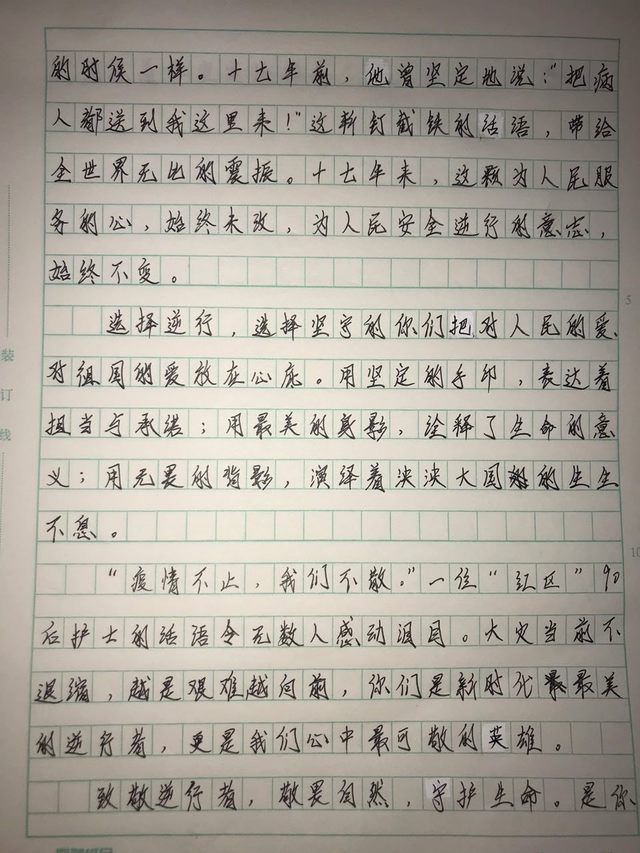 的时候一样。十七年前，他曾坚定地说："把病
人都送到我这里来！"这斩钉截铁的话语，带给
全世界无比的震撼。十七年来，这颗为人民服
务的心，始终未改，为人民安全逆行的意志，
始终不变。
选择逆行，选择坚守的你们把对人民的爱、
对祖国的爱放在心底。用坚定的手印，表达着
担当与承诺；用最美的身影，诠释了生命的意
义；用无畏的背影，演绎着泱泱大国的生生
不息。
"疫情不止，我们不散。"一位"红区"90
后护士的话语令无数人感动泪目。大灾当前不
退缩，越是艰难越向前，你们是新时代最美
的逆行者，更是我们心中最可敬的英雄。
致敬逆行者，敬畏自然，守护生命。是你
装
订
线
5
10